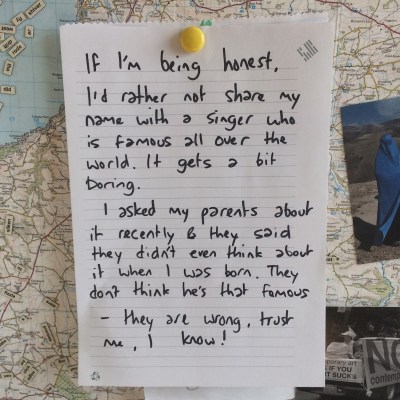 If I'm being honest,
I'd rather not share my
name with a singer who
is famous all over the
world. It gets a bit
boring.
I asked my parents about
it recently & they said
they didn't even think about
it when I was born. They
don't think he's that famous
- they are wrong, trust
me, I know!
IF YOU
SUCKS
NO
contemp